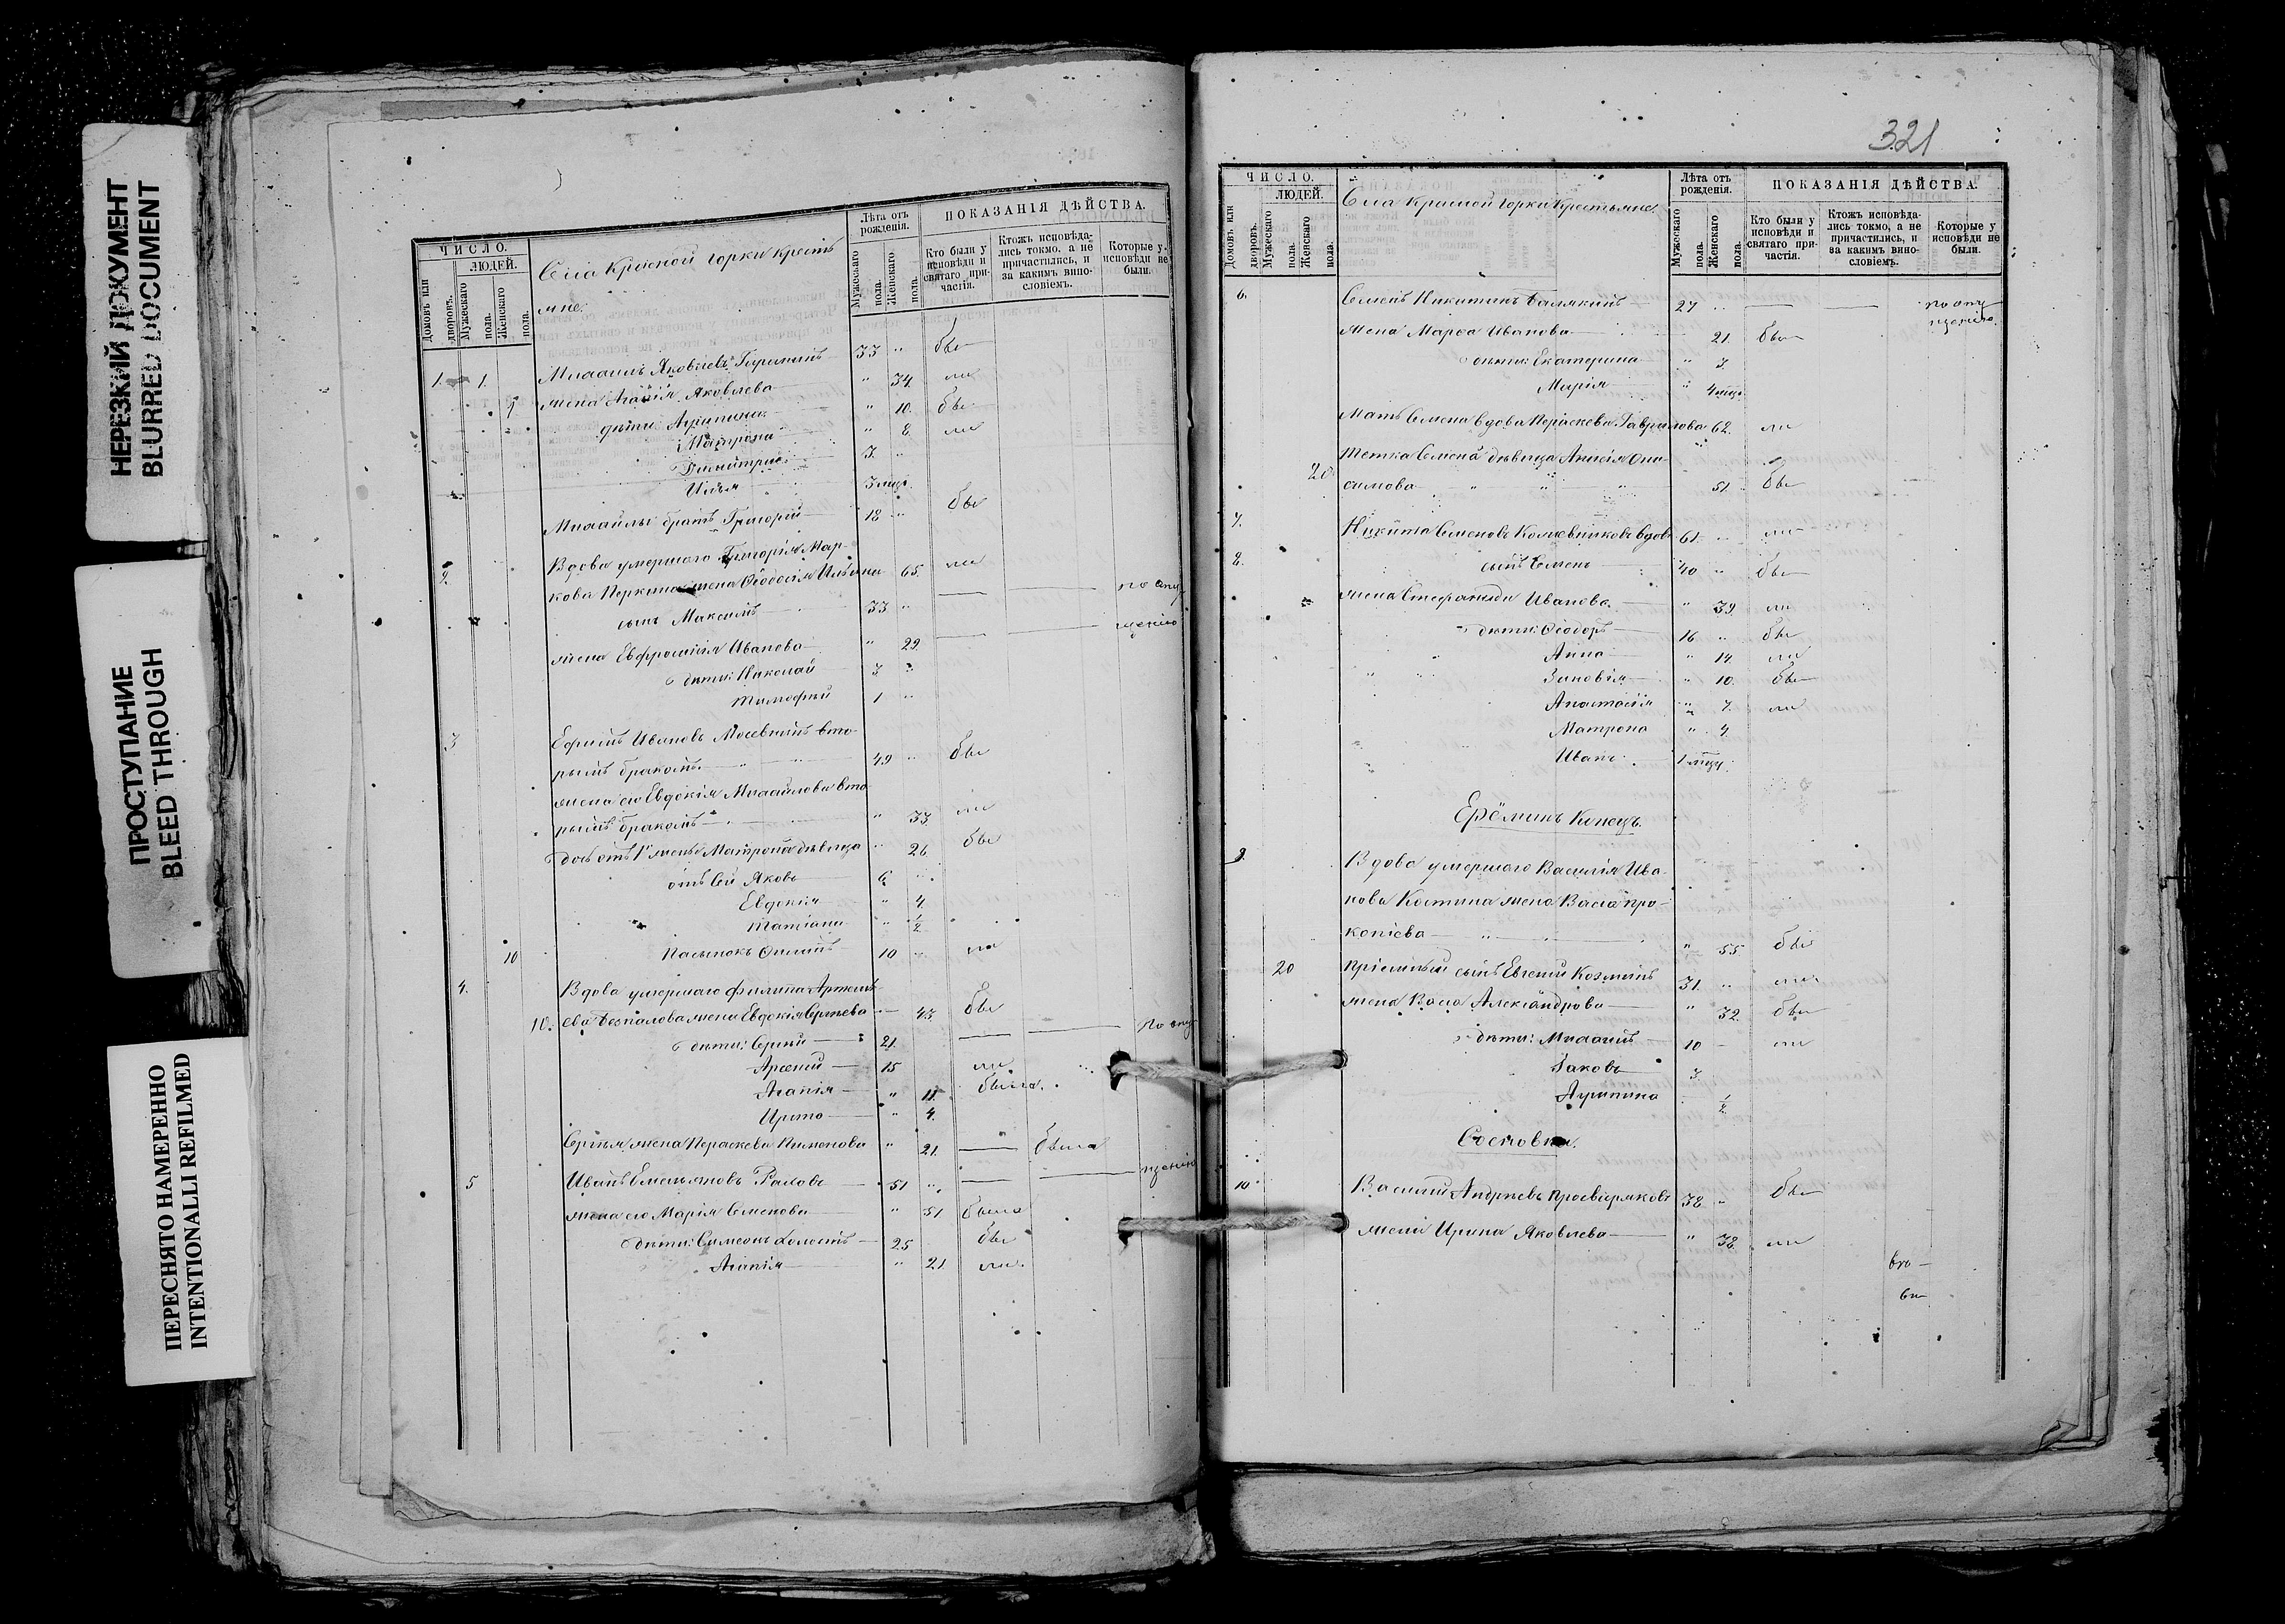 НЕРЕЗКИЙ ДОКУМЕНТ
BLURRED DOCUMENT
ПРОСТУПАНИЕ
BLEED THROUGH
ПЕРЕСНЯТО НАМЕРЕННО
INTENTIONALLI REFILMED
ЧИСЛО.
ЛЮДЕЙ.
Домовъ или дворовъ.
Мужескаго пола.
Женскаго пола.
Села Красной горки кресть
яне.
Лѣта отъ рожденія.
Мужескаго пола.
Женскаго пола.
ПОКАЗАНІЯ ДѢЙСТВА.
Кто были у исповѣди и святаго причастія.
Ктожъ исповѣдались токмо, а не причастились, и за какимъ винословіемъ.
Которые у исповѣди не были.
1. 1. Михаилъ Яковлевъ 33 " бы
жена Агафія Яковлева " 34. ли
дѣти: Агрипина " 10. бы
Матрона " 8. ли
Димитрій 3. "
Илья 3 мѣс.
Михаилы братъ Григорій 18 " бы
2. Вдова умершаго Григорія Мар-
кова жена Ѳеодосія Ильина 65. ли
сынъ Максимъ 33 " по опу
жена Евфросинія Иванова " 29. щенію
дѣти: Николай 3 "
Тимофей 1 "
3 Ефимъ Ивановъ вто-
рымъ бракомъ 49 " бы
жена его Евдокія Михайлова вто
рымъ бракомъ " 33. ли
дочь отъ 1й жены Матрона дѣвица " 26 бы
отъ ней Яковъ 6. "
Евдокія " 4.
Татіана " ½
10 Пасынокъ Филипъ 10 " ли
4. Вдова умершаго Филипа Артемь
10. ева Безпалова жена Евдокія Сергѣева 43. бы
дѣти: Сергѣй 21. по опу
Арсеній 15 ли
Агапія " 11. была.
Ирина " 4.
Сергѣя жена Параскева Пименова " 21. была
5 Иванъ Емельяновъ 51 " щенію
жена его Марія Семенова " 51 была
дѣти: Симеонъ холостъ 25 бы
Агапія " 21 ли
321
ЧИСЛО.
ЛЮДЕЙ.
Домовъ или дворовъ.
Мужескаго пола.
Женскаго пола.
Села Красной горки Крестьяне.
Лѣта отъ рожденія.
Мужескаго пола.
Женскаго пола.
ПОКАЗАНІЯ ДѢЙСТВА.
Кто были у исповѣди и святаго причастія.
Ктожъ исповѣдались токмо, а не причастились, и за какимъ винословіемъ.
Которые у исповѣди не были.
6. Семенъ Никитинъ 27 " по опу
щенію.
жена Марѳа Иванова 21. бы
дѣти: Екатерина " 3.
Марія " 4 мѣс.
Мать Семена вдова Параскева Гаврилова 62. ли
Тетка Семена дѣвица Анисія Они-
20 симова 51. бы
7. Никита Семеновъ Кожевниковъ вдовъ 61. " ли
8. сынъ Семенъ 40 " бы
жена Стефанида Иванова " 39. ли
дѣти: Ѳеодоръ 16 " бы
Анна " 14. ли
Зиновія " 10. бы
Анастасія " 7. ли
Матрона " 4.
Иванъ 1 мѣс.
Ерёминъ Конецъ.
9. Вдова умершаго Василія Ива-
нова Костина жена Васса Про-
копіева " 55. бы
20 Пріемный сынъ Евгеній Козминъ 31. " ли
жена Васса Александрова " 32. бы
дѣти: Михаилъ 10 – ли
Іаковъ 3.
Агрипина ½
Сосновка.
10 Василій Андреевъ Просвирняковъ 38. " бы
жена Ирина Яковлева " 38. ли